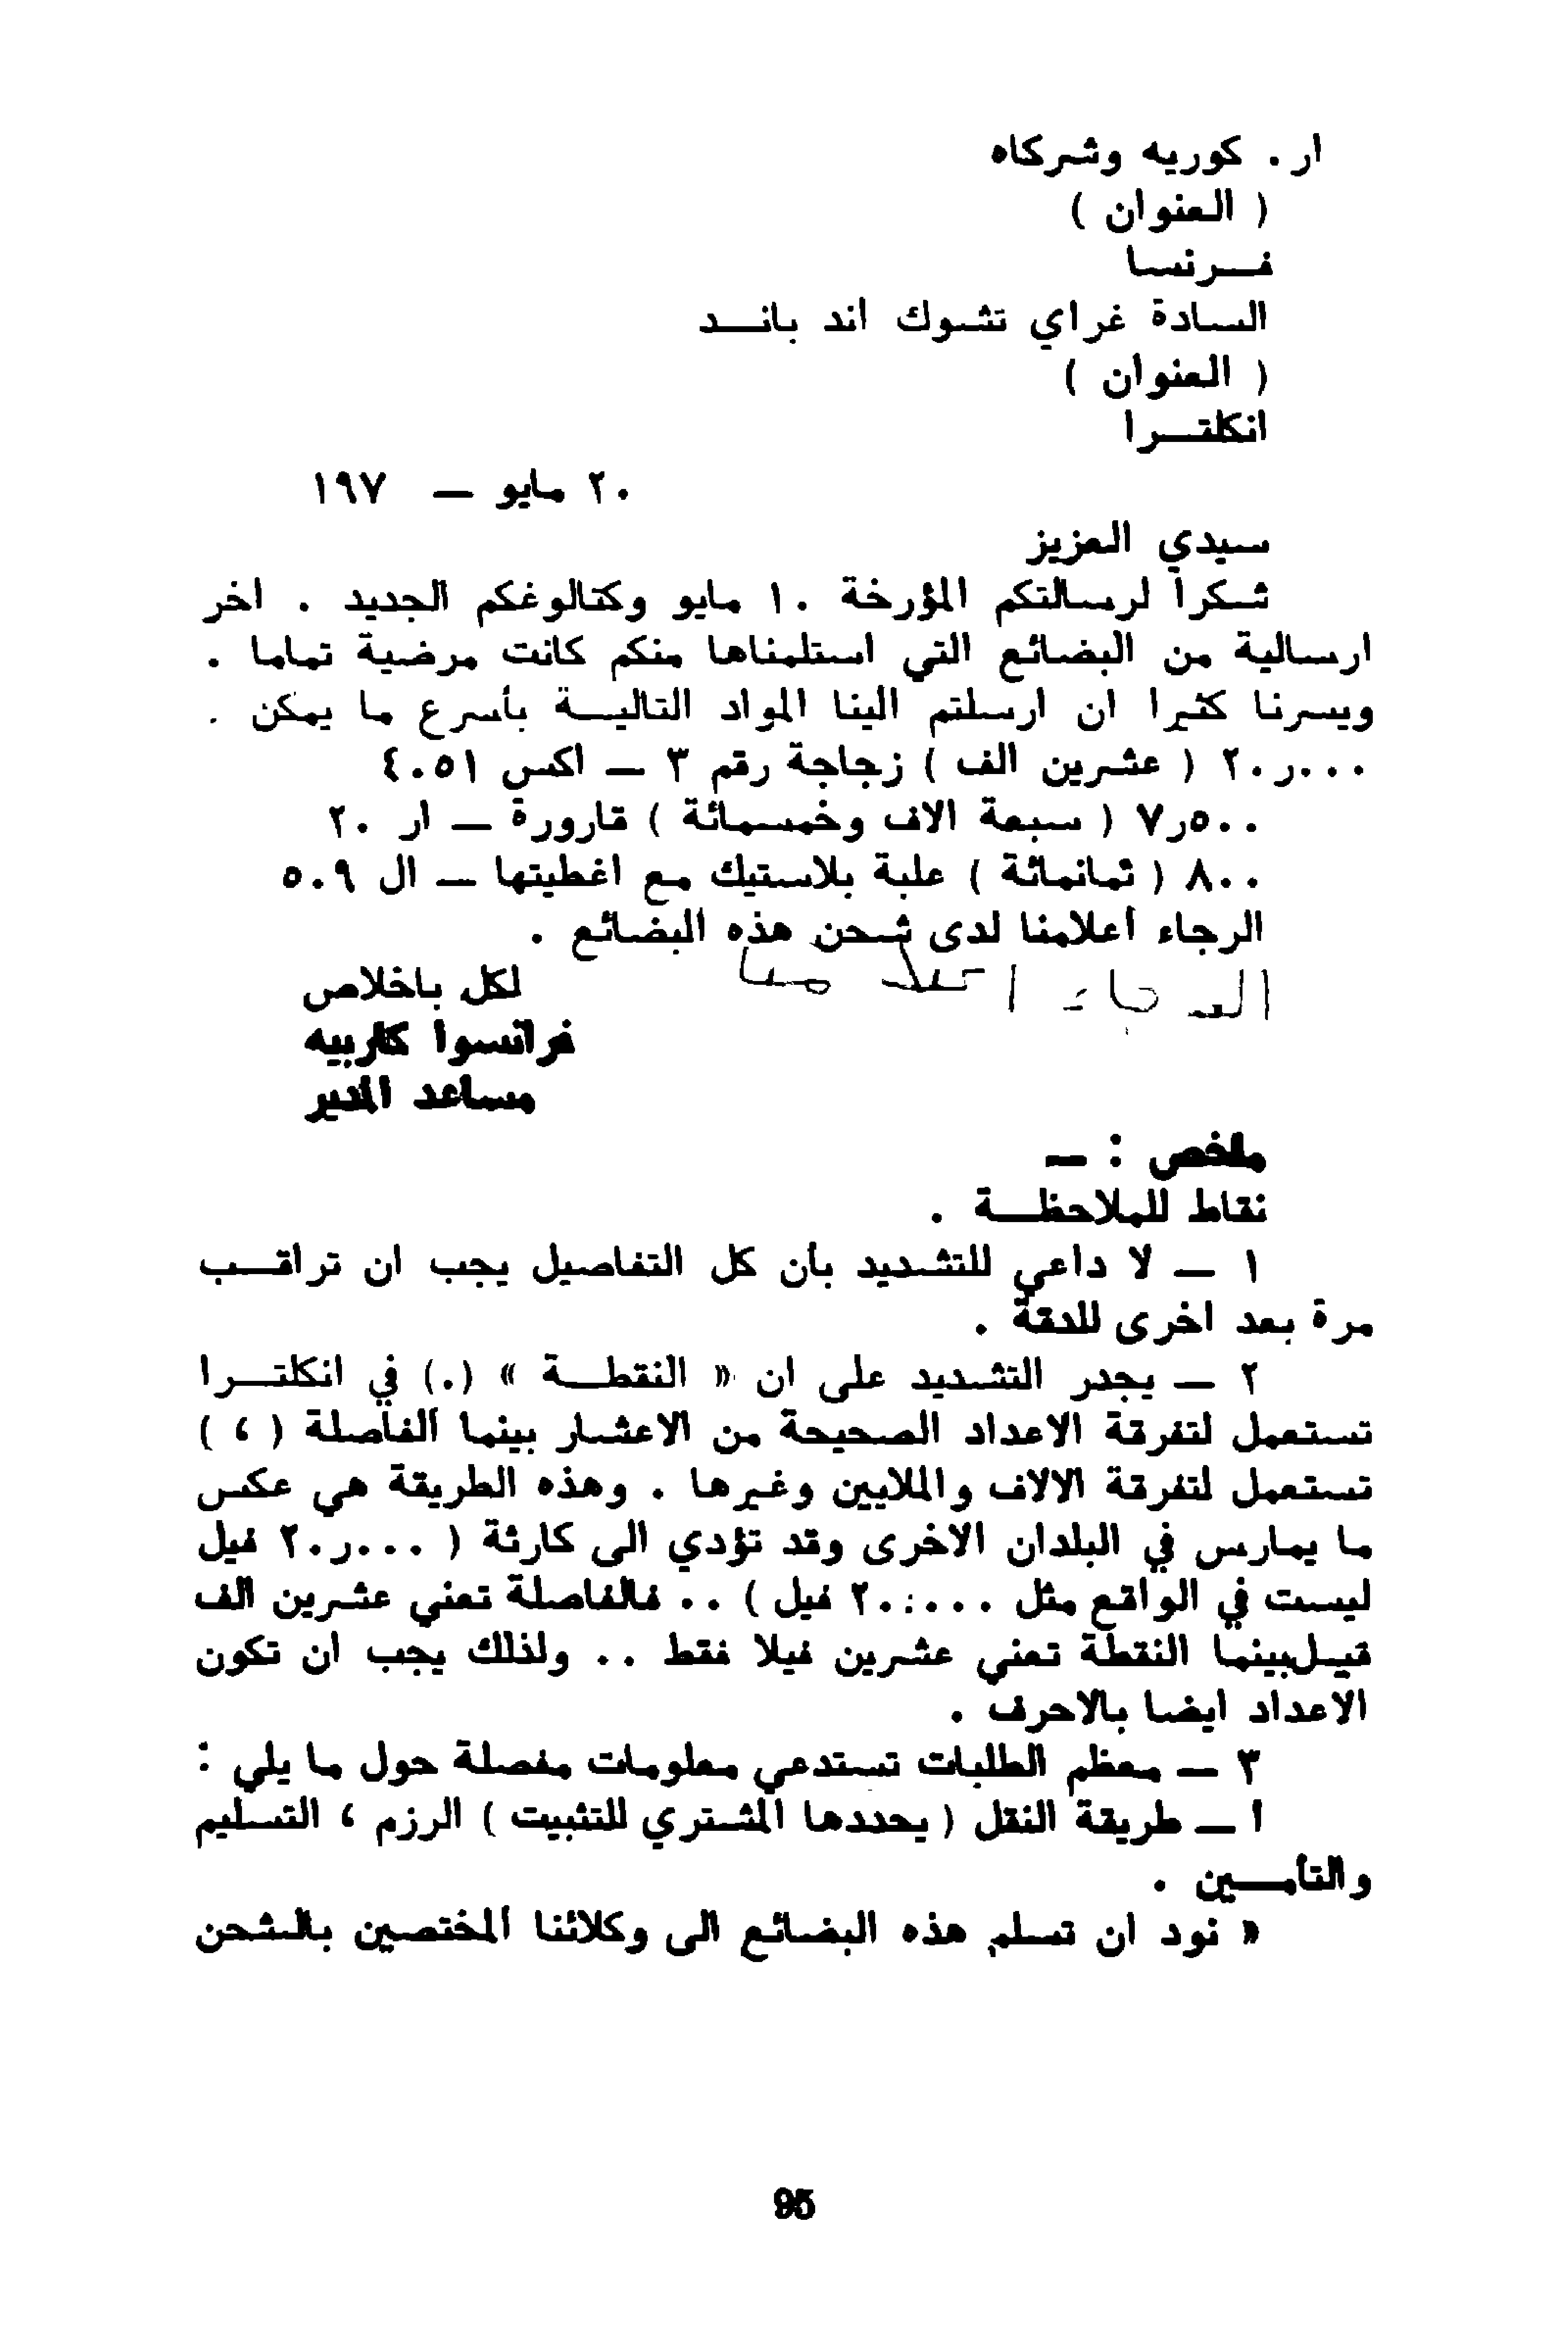 ار . كوريه وشركاه
( العنوان )
فـــرنسا
السادة غراي تشوك اند بانــد
( العنوان )
انكلتــرا
٢٠ مايو — ١٩٧
سيدي العزيز
شكرا لرسالتكم المؤرخة ١٠ مايو وكتالوغكم الجديد . اخر
ارسالية من البضائع التي استلمناها منكم كانت مرضية تماما .
ويسرنا كثيرا ان ارسلتم الينا المواد التاليــة بأسرع ما يمكن .
٢٠ر٠٠٠ ( عشرين الف ) زجاجة رقم ٣ — اكس ٤٠٥١
٧ر٥٠٠ ( سبعة الاف وخمسمائة ) قارورة — ار ٢٠
٨٠٠ ( ثمانمائة ) علبة بلاستيك مع اغطيتها — ال ٥٠٩
الرجاء أعلامنا لدى شحن هذه البضائع .
الرجاء اعلامنا
لكل باخلاص
فرانسوا كاربيه
مساعد المدير
ملخص : —
نقاط للملاحظــة .
١ — لا داعي للتشديد بأن كل التفاصيل يجب ان تراقــب
مرة بعد اخرى للدقة .
٢ — يجدر التشديد على ان « النقطــة » (.) في انكلتــرا
تستعمل لتفرقة الاعداد الصحيحة من الاعشار بينما الفاصلة ( ، )
تستعمل لتفرقة الالاف والملايين وغيرها . وهذه الطريقة هي عكس
ما يمارس في البلدان الاخرى وقد تؤدي الى كارثة ( ٢٠ر٠٠٠ فيل
ليست في الواقع مثل ٢٠:٠٠٠ فيل ) . . فالفاصلة تعني عشرين الف
فيل بينما النقطة تعني عشرين فيلا فقط . . ولذلك يجب ان تكون
الاعداد ايضا بالاحرف .
٣ — معظم الطلبات تستدعي معلومات مفصلة حول ما يلي :
أ — طريقة النقل ( يحددها المشتري للتثبيت ) الرزم ، التسليم
والتأمــين .
« نود ان تسلم هذه البضائع الى وكلائنا المختصين بالشحن
95